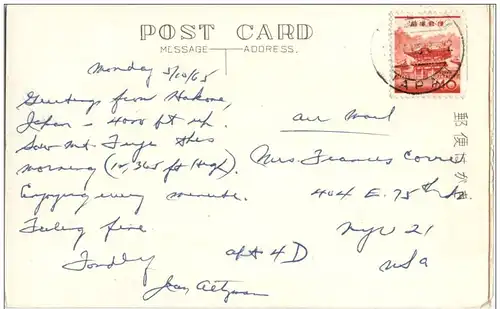 POST CARD
MESSAGE ADDRESS.
Monday 5/10/65
Greetings from Hakone,
Japan – 4000 ft up.
Saw Mt. Fuji this
morning (12,365 ft High).
Enjoying every minute.
Feeling fine.
Fondly
air mail
Mrs. Frances
404 E. 75th St.
apt 4D
NYC 21
USA
郵便はがき